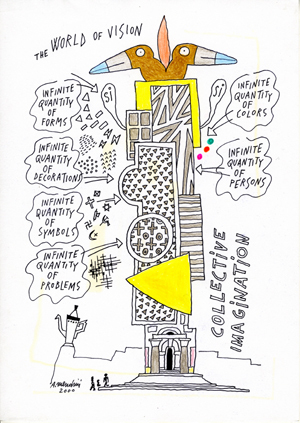 THE WORLD OF VISION
INFINITE
QUANTITY
OF
FORMS
SI
SI
INFINITE
QUANTITY
OF
COLORS
INFINITE
QUANTITY
OF
DECORATIONS
INFINITE
QUANTITY
OF
PERSONS
INFINITE
QUANTITY
OF
SYMBOLS
INFINITE
QUANTITY
OF
PROBLEMS
COLLECTIVE
IMAGINATION
2000